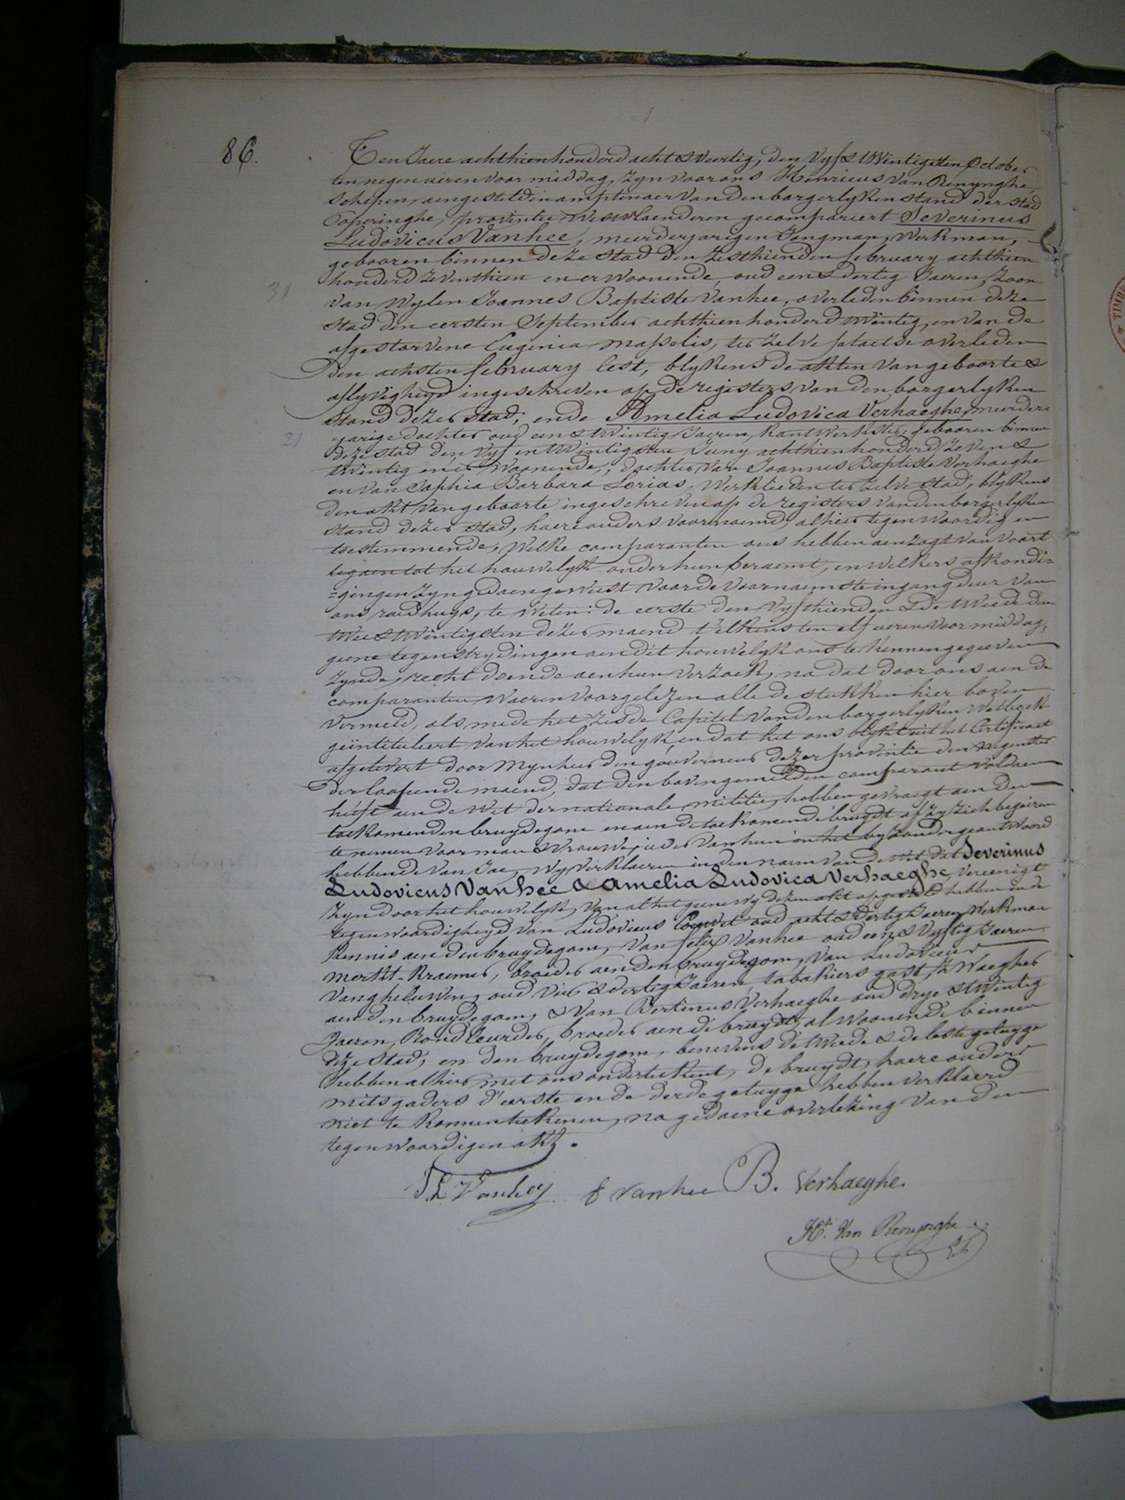 86.
Ten Jaere achthienhonderd acht & veertig, den vyf & twintigsten october
ten negen uren voor middag, zyn voor ons Henricus Van Renynghe,
schepen, aengesteld in amptenaer van den borgerlyken stand der stad
Poperinghe, provintie Westvlaenderen gecompareert Severinus
Ludovicus Vanhee, meerderjarigen Jongman, Werkman,
gebooren binnen deze stad den zesthienden february achthien
honderd zeventhien en er woonende, oud een & dertig Jaeren, Zoon
31
van wylen Joannes Baptiste Vanhee, overleden binnen deze
stad den eersten September achthienhonderd twintig, en van de
afgestorvene Eugenia Masselis, ter zelve plaetse overleden
den achsten february lest, blykens de akten van geboorte &
aflyvigheyd ingeschreven op de registers van den borgerlyken
stand dezer stad; ende Amelia Ludovica Verhaeghe, meerder
21
jarige dochter oud een & twintig Jaeren, kantwerkster, gebooren binnen
deze stad den vyf en twintigsten Juny achthienhonderd zeven &
twintig en er woonende, dochter van Joannes Baptiste Verhaeghe
en van Sophia Barbara Lorias, Werklieden ter zelve stad, blykens
den akt van geboorte ingeschreven op de registers van den borgerlyken
stand dezer stad, haere ouders voornoemd, alhier tegenwoordig en
toestemmende, Welke comparanten ons hebben aenzogt van voort
tegaen tot het houwelyk onder hun beraemt, en welkers afkondi-
=gingen zyn gedaen geweest voor de voornaemste ingang deur van
ons raedhuys, te weten: de eerste den vyfthienden & de tweede den
twee & twintigsten dezer maend telkens ten elf uren voor middag,
geene tegenstrydingen aen dit houwelyk ons te kennen gegeven
zynde, recht doende aen hun verzoek, na dat door ons aen de
comparanten waeren voorgelezen alle de stukken hier boven
vermeld, als mede het zesde Capitel van den borgerlyken Wetboek
geïntituleert van het houwelyk, en dat het ons blykt uit het Certificaet
afgelevert door Mynheer den gouverneur dezer provintie den negensten
der loopende maend, dat den bovengemelden comparant voldaen
heeft aen de Wet der nationale militie, hebben gevraegt aen den
toekomenden bruydegom en aen de toekomende bruydt of zy zich begeeren
te nemen voor man & vrouw, ieder van hun in het byzonder geantwoord
hebbende van Jae, wy verklaeren in den naem van de Wet dat Severinus
Ludovicus Vanhee & Amelia Ludovica Verhaeghe vereenigt
zyn door het houwelyk, van al het geene wy dezen akt opgesteld hebben in de
tegenwoordigheyd van Ludovicus oud acht & dertig Jaeren, Werkman
kennis aen den bruydegom, van felix Vanhee oud een & vyftig Jaeren
Merkt kraemer, broeder aen den bruydegom, van Ludovicus
Vangheluwen, oud vier & dertig Jaeren, tabakiers gast, Zwaegher
aen den bruydegom, & van Bertinus Verhaeghe oud drye & twintig
Jaeren, broeder aen de bruydt, al woonende binnen
deze stad, en den bruydegom, benevens de tweede & de leste getuyge
hebben alhier met ons onderteekent, de bruydt, haere ouders
mitsgaders d'eerste en de derde getuyge hebben verklaerd
niet te konnen teekenen, na gedaene overlezing van den
tegenwoordigen akt.
S. L Vanhey f Vanhee B. Verhaeghe.
Hri. Van Renynghe